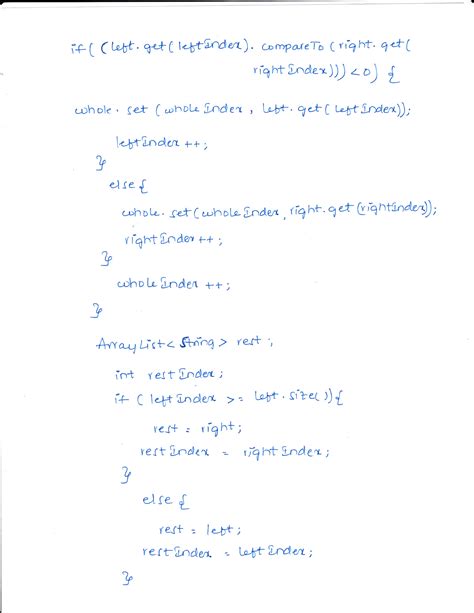 if( (left.get(leftIndex). compareTo (right.get(
rightIndex))) <0) {
whole.set (wholeIndex, left.get(leftIndex));
leftIndex ++;
}
else {
whole.set(wholeIndex, right.get(rightIndex));
rightIndex ++;
}
wholeIndex ++;
}
ArrayList< String > rest ;
int restIndex;
if (leftIndex >= left.size()){
rest = right;
restIndex = rightIndex;
}
else {
rest = left;
restIndex = leftIndex;
}